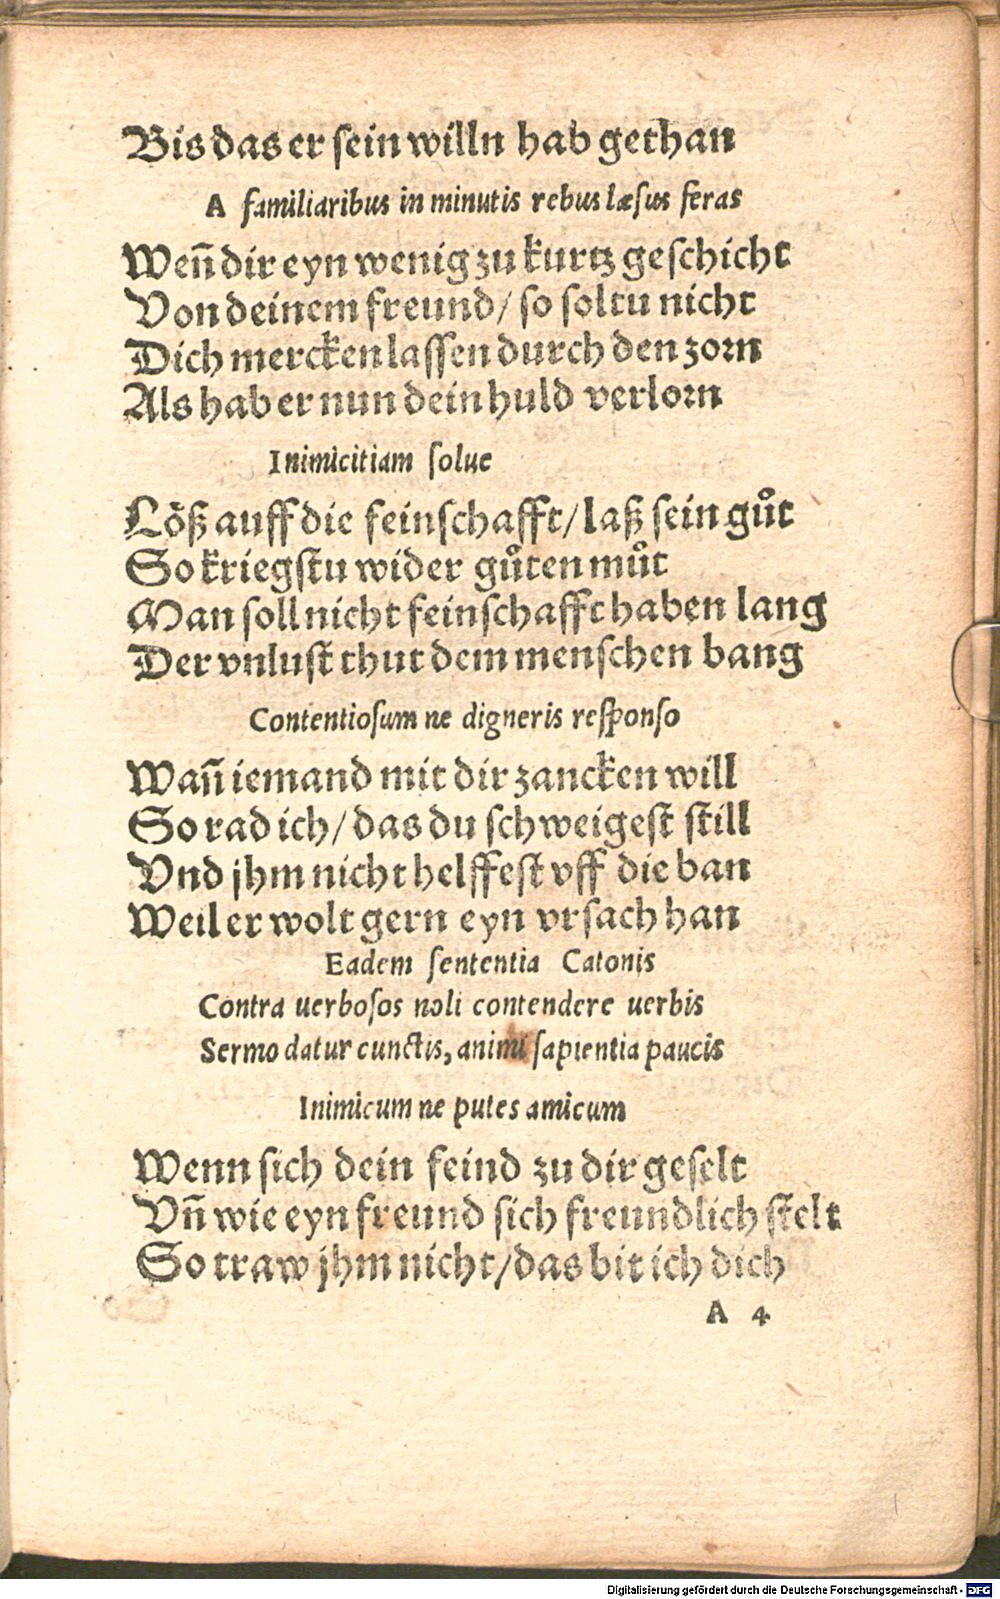 Bis das er ſein willn hab gethan
A familiaribus in minutis rebus læſus feras
Weñ dir eyn wenig zu kurtz geſchicht
Von deinem freund/ ſo ſoltu nicht
Dich mercken laſſen durch den zorn
Als hab er nun dein huld verlorn
Inimicitiam ſolue
Löß auff die feinſchafft/ laß ſein gůt
So kriegſtu wider gůten můt
Man ſoll nicht feinſchafft haben lang
Der vnluſt thut dem menſchen bang
Contentioſum ne digneris reſponſo
Wañ iemand mit dir zancken will
So rad ich/ das du ſchweigeſt ſtill
Vnd jhm nicht helffeſt vff die ban
Weil er wolt gern eyn vrſach han
Eadem ſententia Catonis
Contra uerboſos noli contendere uerbis
Sermo datur cunctis, animi ſapientia paucis
Inimicum ne putes amicum
Wenn ſich dein feind zu dir geſelt
Vñ wie eyn freund ſich freundlich ſtelt
So traw jhm nicht/ das bit ich dich
A 4
Digitalisierung gefördert durch die Deutsche Forschungsgemeinschaft - DFG